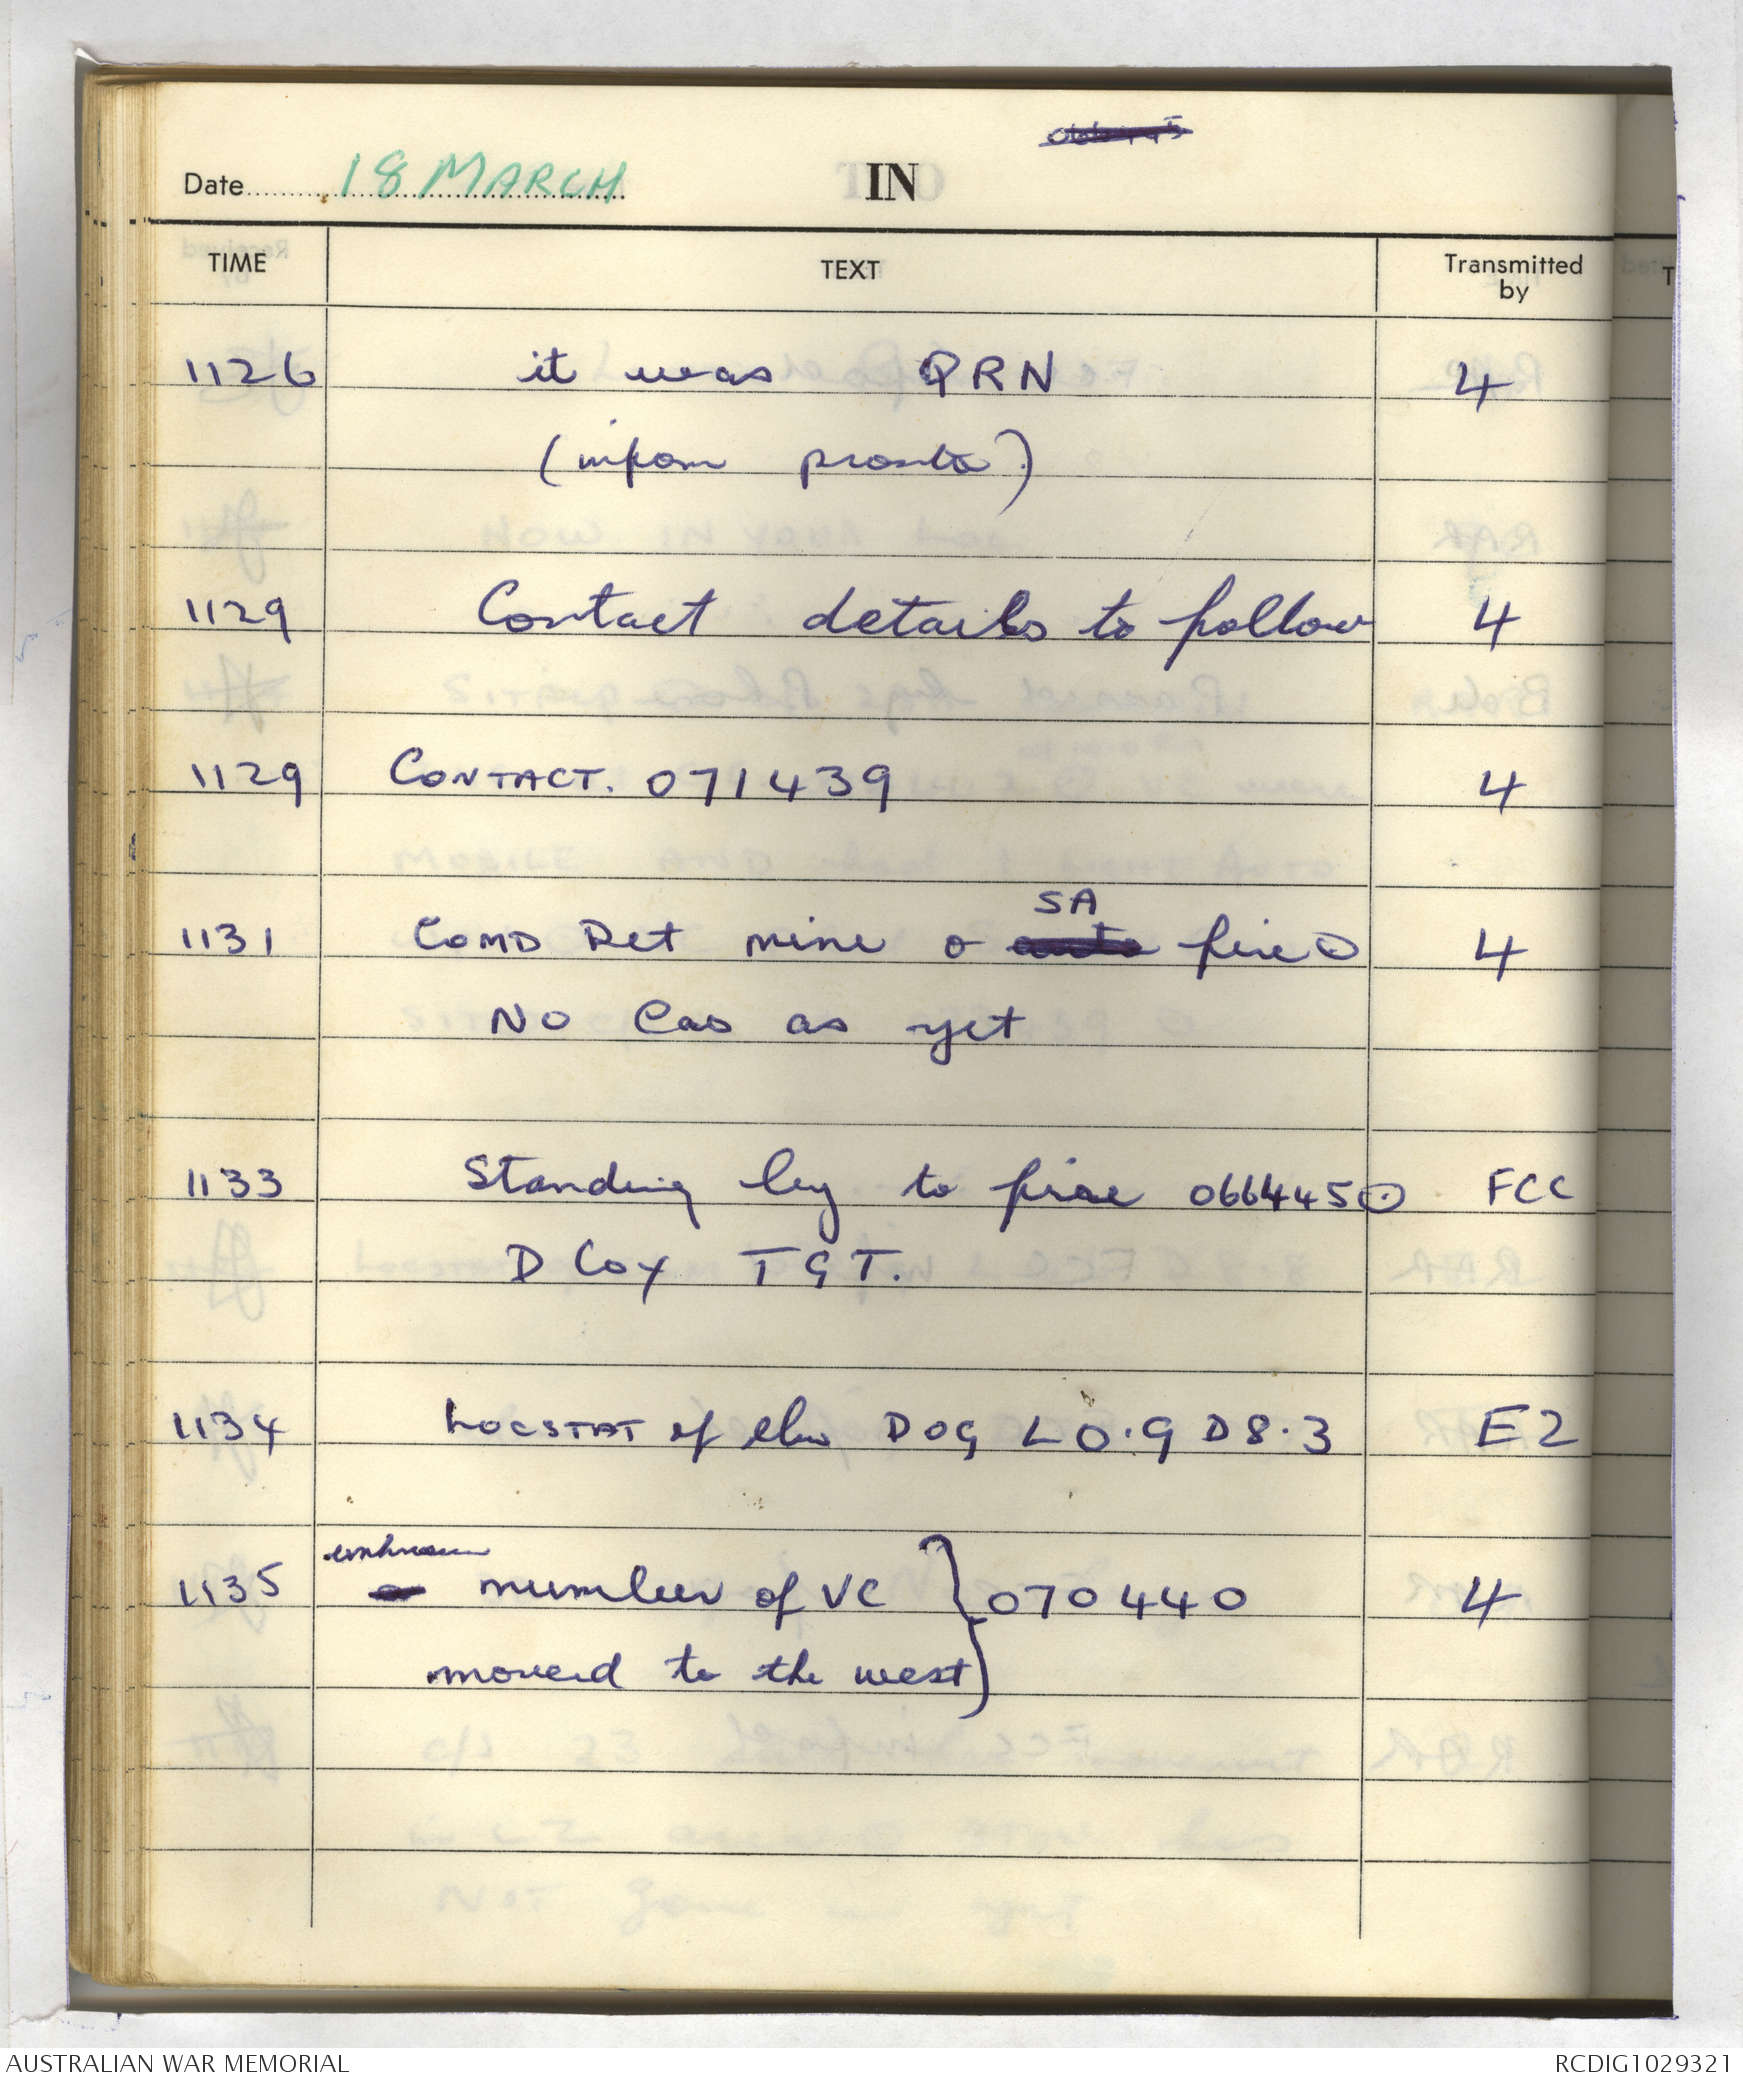 Date 18 MARCH
IN
TIME TEXT Transmitted by
1126 it was QRN 4
(infom pronto)
1129 Contact details to follow 4
1129 CONTACT. 071439 4
SA
1131 COMD Det mine & fire 4
NO Cas as yet
1133 Standing by to fire 066445 FCC
D Coy TGT.
1134 LOCSTAT of DOG L0.9 D8.3 E2
unknown
1135 number of VC } 070440 4
moved to the west
AUSTRALIAN WAR MEMORIAL RCDIG1029321